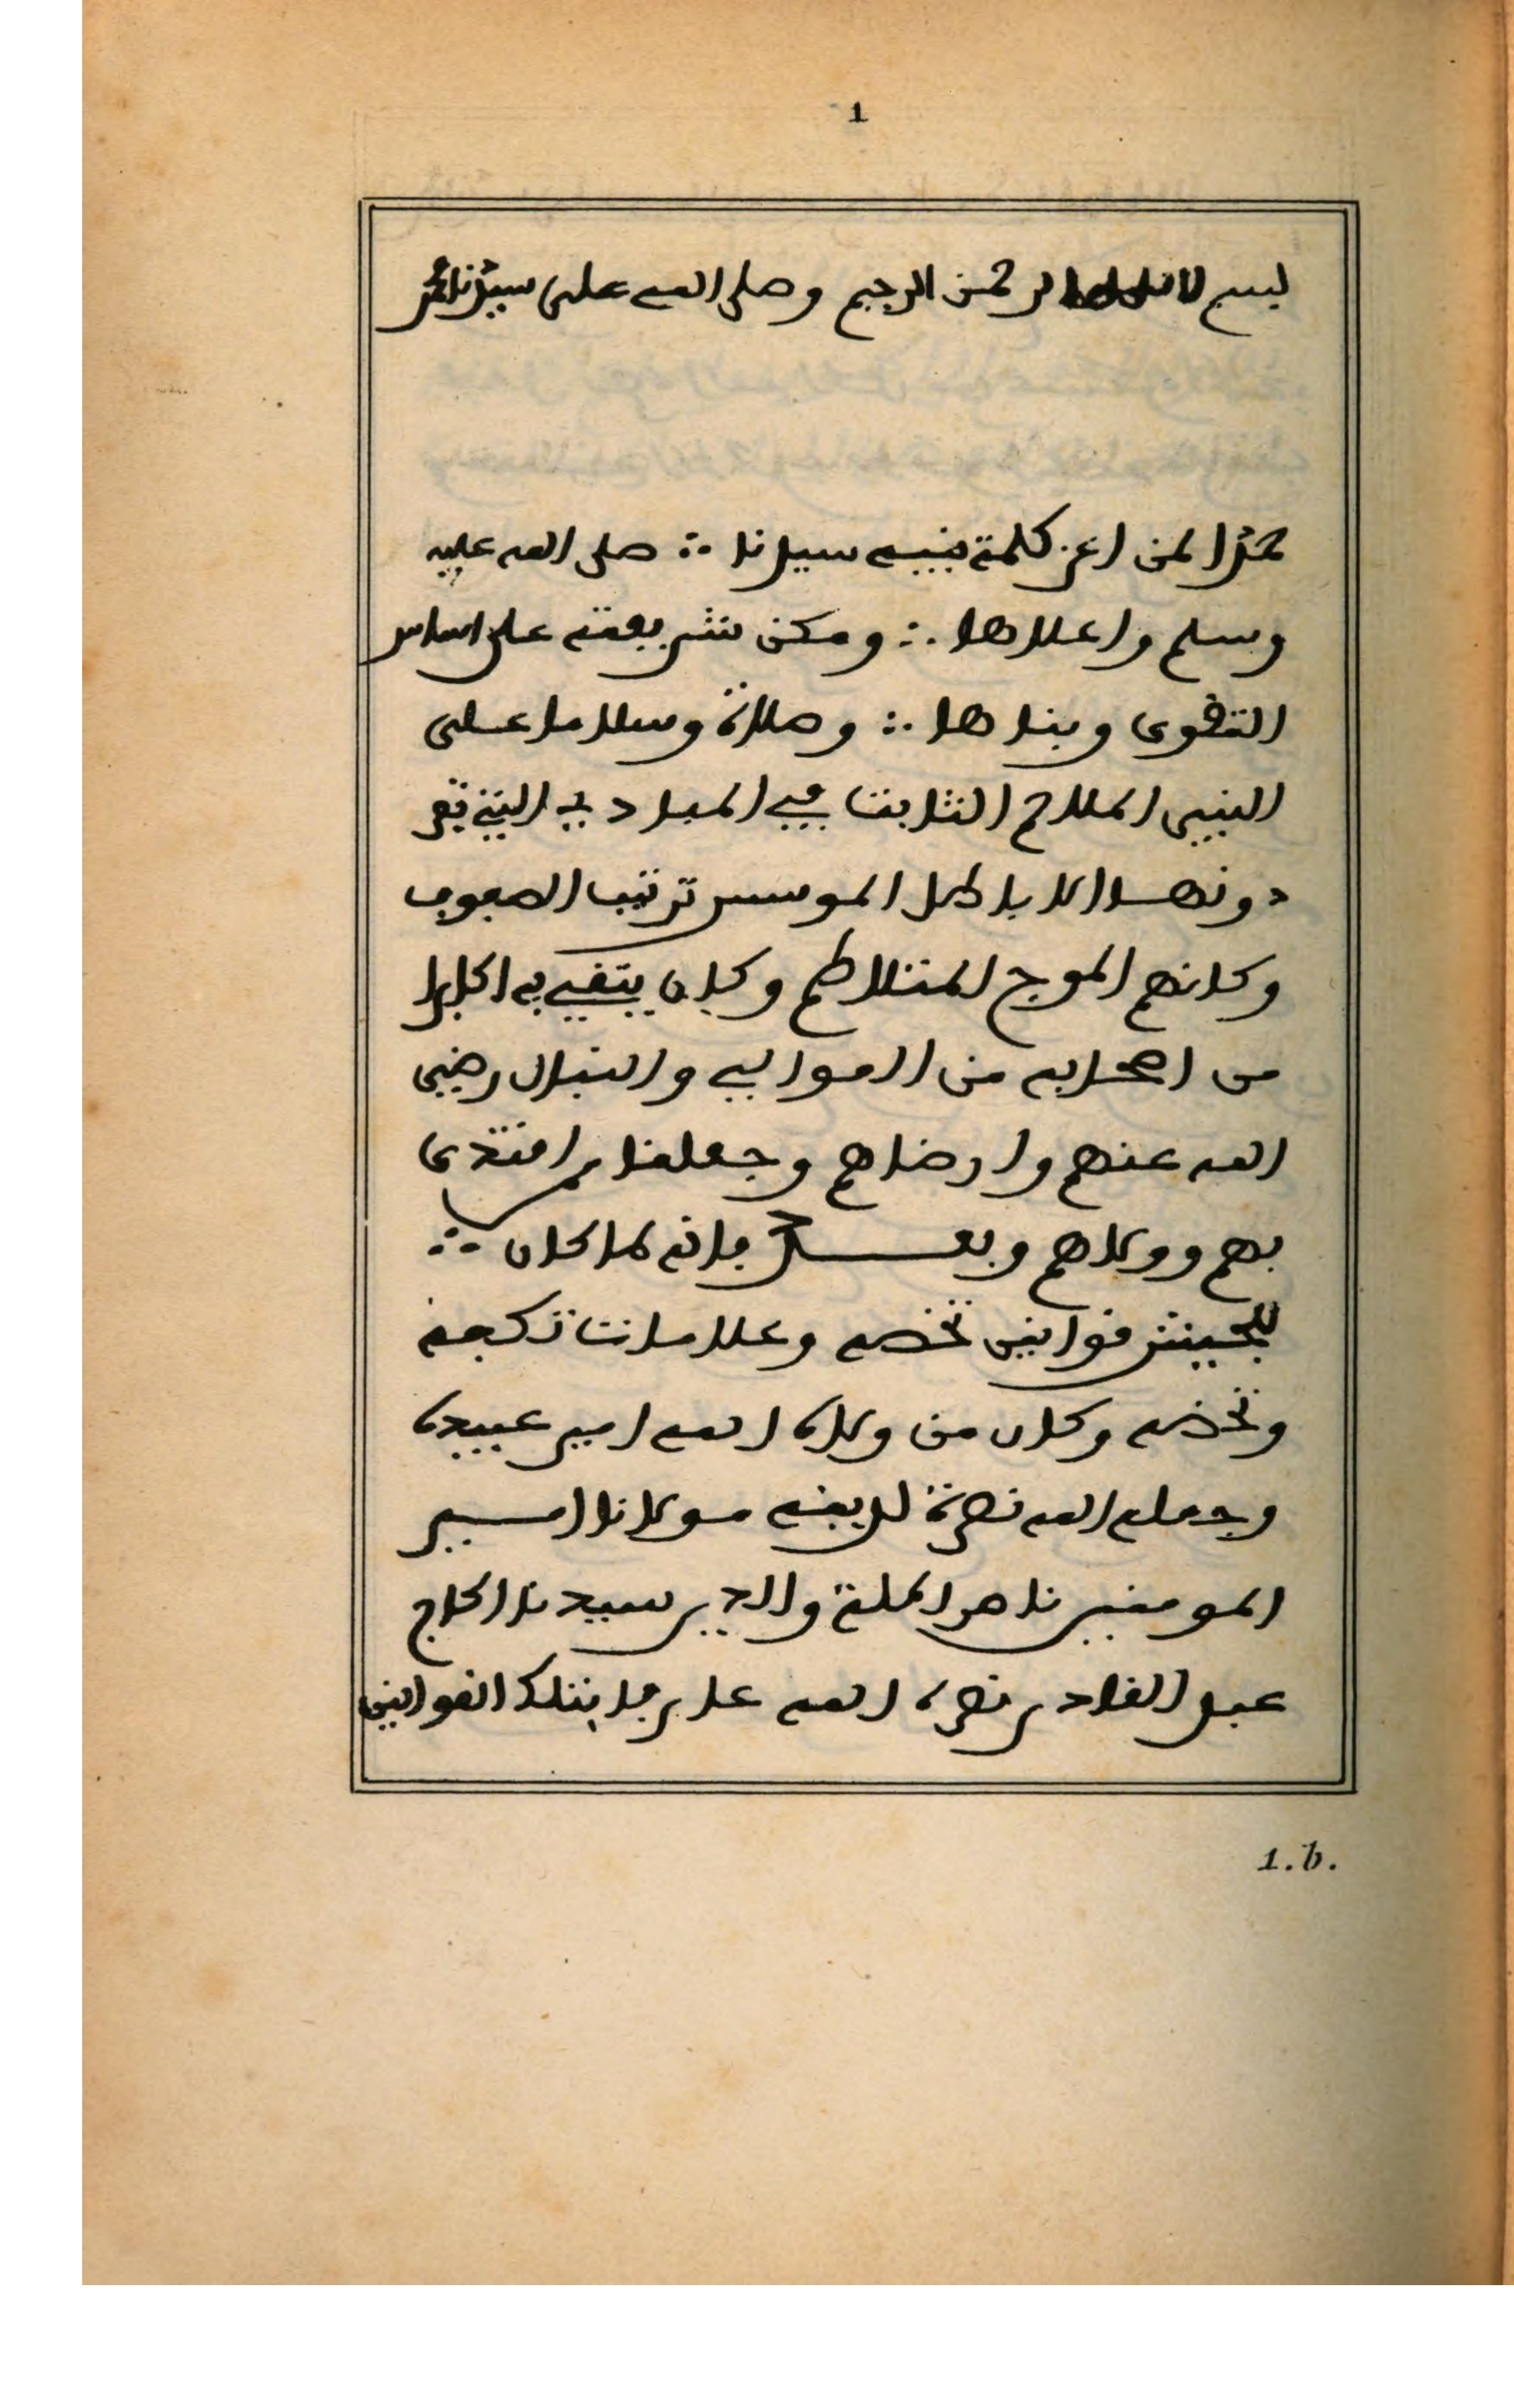 1
بسم الله الرحمن الرحيم وصلى الله على سيدنا محمد
حمدا لمن اعز كلمة نبيه سيدنا ∴ صلى الله عليه
وسلم واعلاها ∴ ومكن شريعته على اساس
التقوى وبناها ∴ وصلاة وسلاما على
النبي الملاحم الثابت في المبادي التي تفر
دونها الاباطل الموسس ترتيب الصفوف
وكانهم الموج المتلاطم وكان يتقي به اكابرا
من اصحابه من الموالي والنبال رضي
الله عنهم وارضاهم وجعلنا ممن اقتدى
بهم ووالاهم وبعد فانه لما كان ∴
للجيش قوانين تخصه وعلامات تكجه
وتحضه وكان من ولاه الله امير عبيده
وجعله الله نصرة لدينه مولانا امير
المومنين ناصر الملة والدين سيدنا الحاج
عبد القادر نصره الله علم بتلك القوانين
1.b.